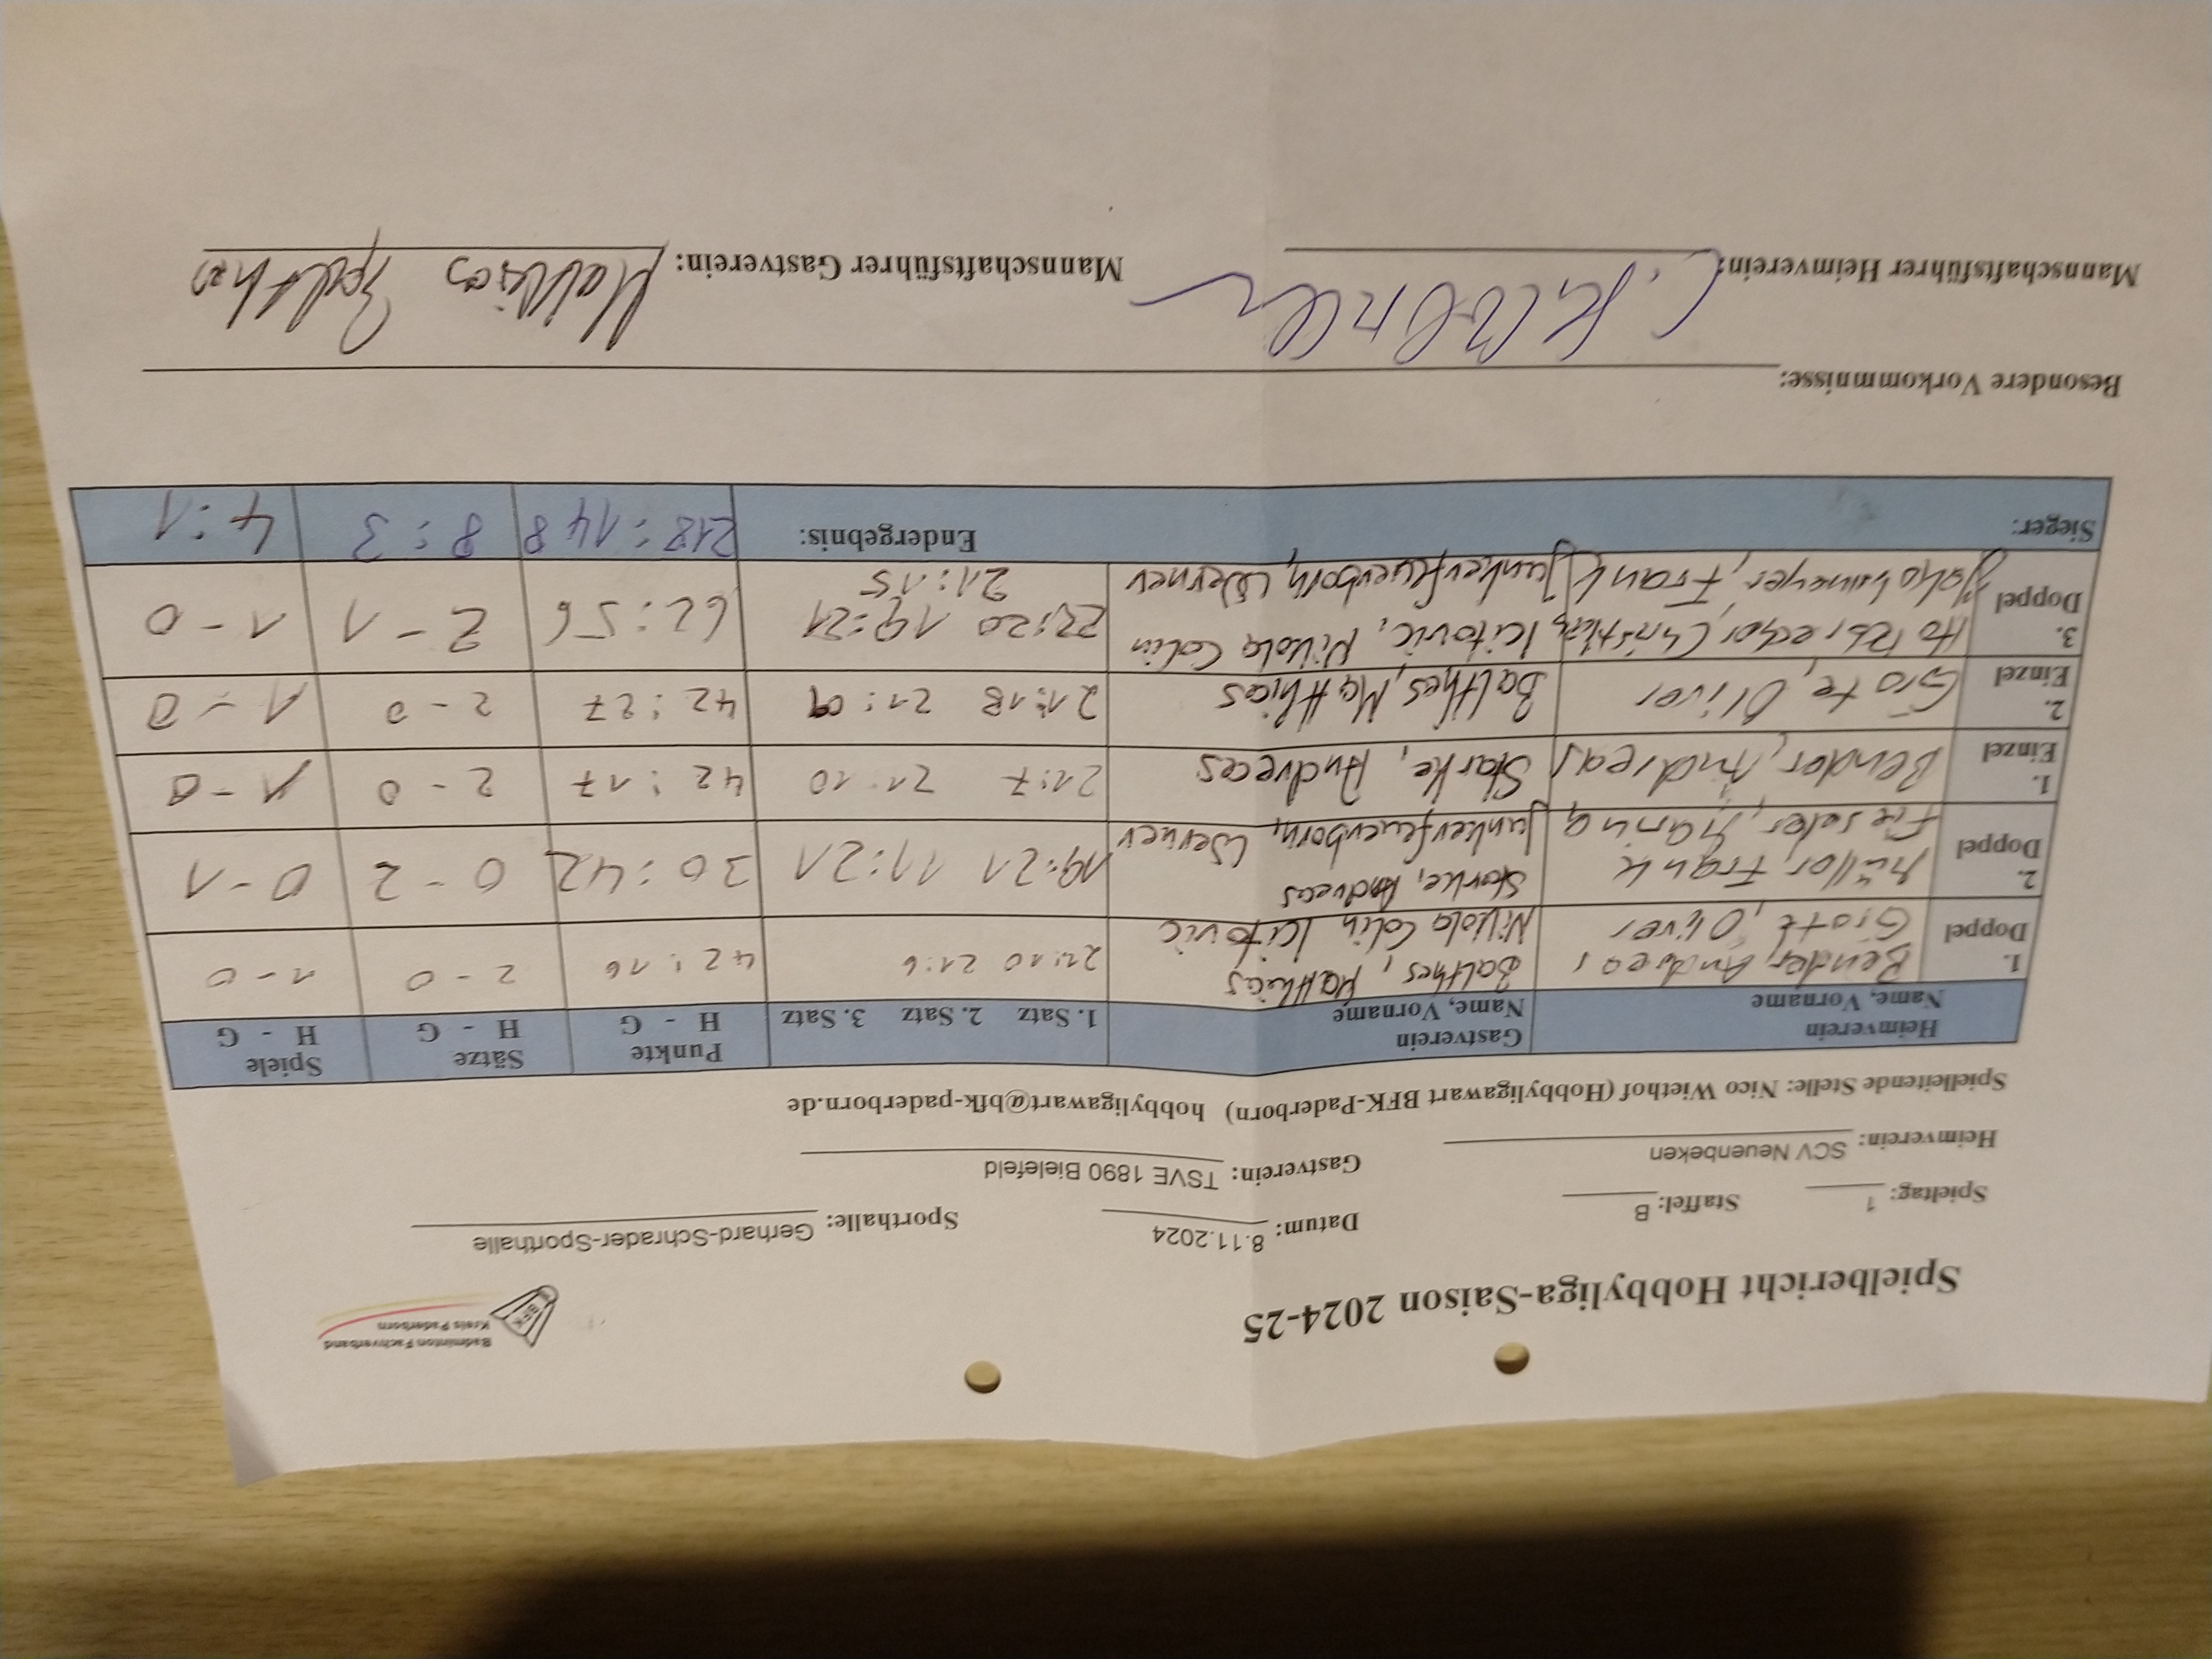 Badminton Fachverband
Kreis Paderborn
BFK
Spielbericht Hobbyliga-Saison 2024-25
Spieltag: 1 Staffel: B Datum: 8.11.2024 Sporthalle: Gerhard-Schrader-Sporthalle
Heimverein: SCV Neuenbeken Gastverein: TSVE 1890 Bielefeld
Spielleitende Stelle: Nico Wiethof (Hobbyligawart BFK-Paderborn) hobbyligawart@bfk-paderborn.de
Heimverein Gastverein Punkte Sätze Spiele
Name, Vorname Name, Vorname 1. Satz 2. Satz 3. Satz H - G H - G H - G
1. Bender, Andreas Balthes, Matthias 21:10 21:6 42:16 2-0 1-0
Doppel Grote, Oliver Nikola Colin Kitovic
2. Müller, Frank Starke, Andreas 19:21 11:21 30:42 0-2 0-1
Doppel Fieseler, Marina Junkerfeuerborn, Werner
1. Bender, Andreas Starke, Andreas 21:7 21:10 42:17 2-0 1-0
Einzel
2. Grote, Oliver Balthes, Matthias 21:18 21:09 42:27 2-0 1-0
Einzel
3. Christian Kitovic, Nikola Colin 22:20 19:21 62:56 2-1 1-0
Doppel Frank Junkerfeuerborn, Werner 21:15
Sieger: Endergebnis: 218:148 8:3 4:1
Besondere Vorkommnisse:
Mannschaftsführer Heimverein: Mannschaftsführer Gastverein: Matthias Balthes